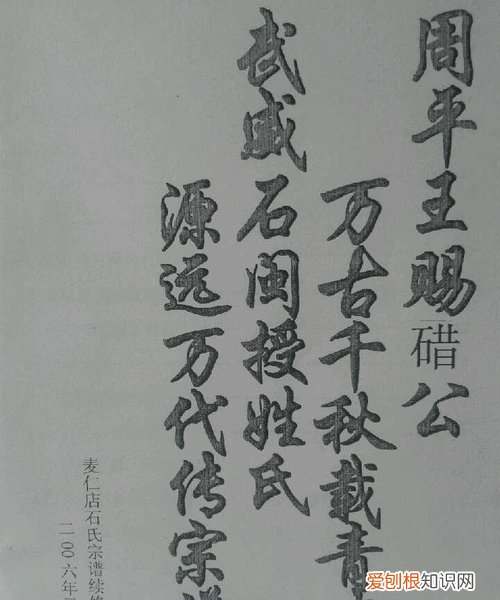 周平王赐碏公
万古千秋载青
武威石闽授姓氏
源远万代传宗
麦仁店石氏宗谱续
二00六年
爱刨根知识网
www.baogenzhishi.com